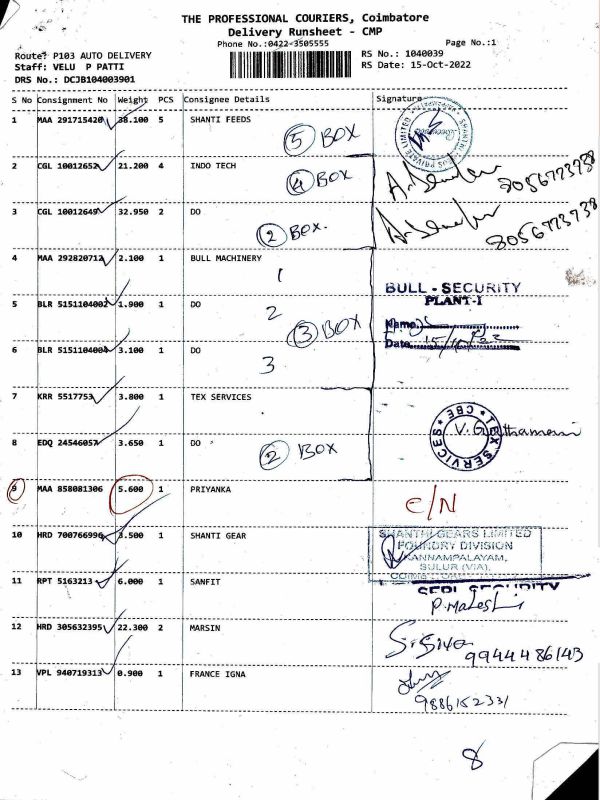 THE PROFESSIONAL COURIERS, Coimbatore
Delivery Runsheet - CMP
Phone No.:0422-3505555 Page No.:1
Route: P103 AUTO DELIVERY RS No.: 1040039
Staff: VELU P PATTI RS Date: 15-Oct-2022
DRS No.: DCJB104003901
S No Consignment No Weight PCS Consignee Details Signature
1 MAA 291715420 38.100 5 SHANTI FEEDS
5 BOX
2 CGL 10012652 21.200 4 INDO TECH
4 BOX 8056773738
3 CGL 10012649 32.950 2 DO
2 BOX. 8056773738
4 MAA 292820712 2.100 1 BULL MACHINERY
1
BULL - SECURITY
PLANT-I
5 BLR 5151104002 1.900 1 DO
2
3 BOX Name
Date 15/10/22
6 BLR 5151104004 3.100 1 DO
3
7 KRR 5517753 3.800 1 TEX SERVICES
TEX SERVICES CBE
8 EDQ 24546057 3.650 1 DO
2 BOX
9 MAA 858081306 5.600 1 PRIYANKA
C/N
10 HRD 700766996 3.500 1 SHANTI GEAR
SHANTHI GEARS LIMITED
FOUNDRY DIVISION
KANNAMPALAYAM,
SULUR (VIA),
11 RPT 5163213 6.000 1 SANFIT
SECURITY
12 HRD 305632395 22.300 2 MARSIN
S. Siva
9944486143
13 VPL 940719313 0.900 1 FRANCE IGNA
9886152331
8